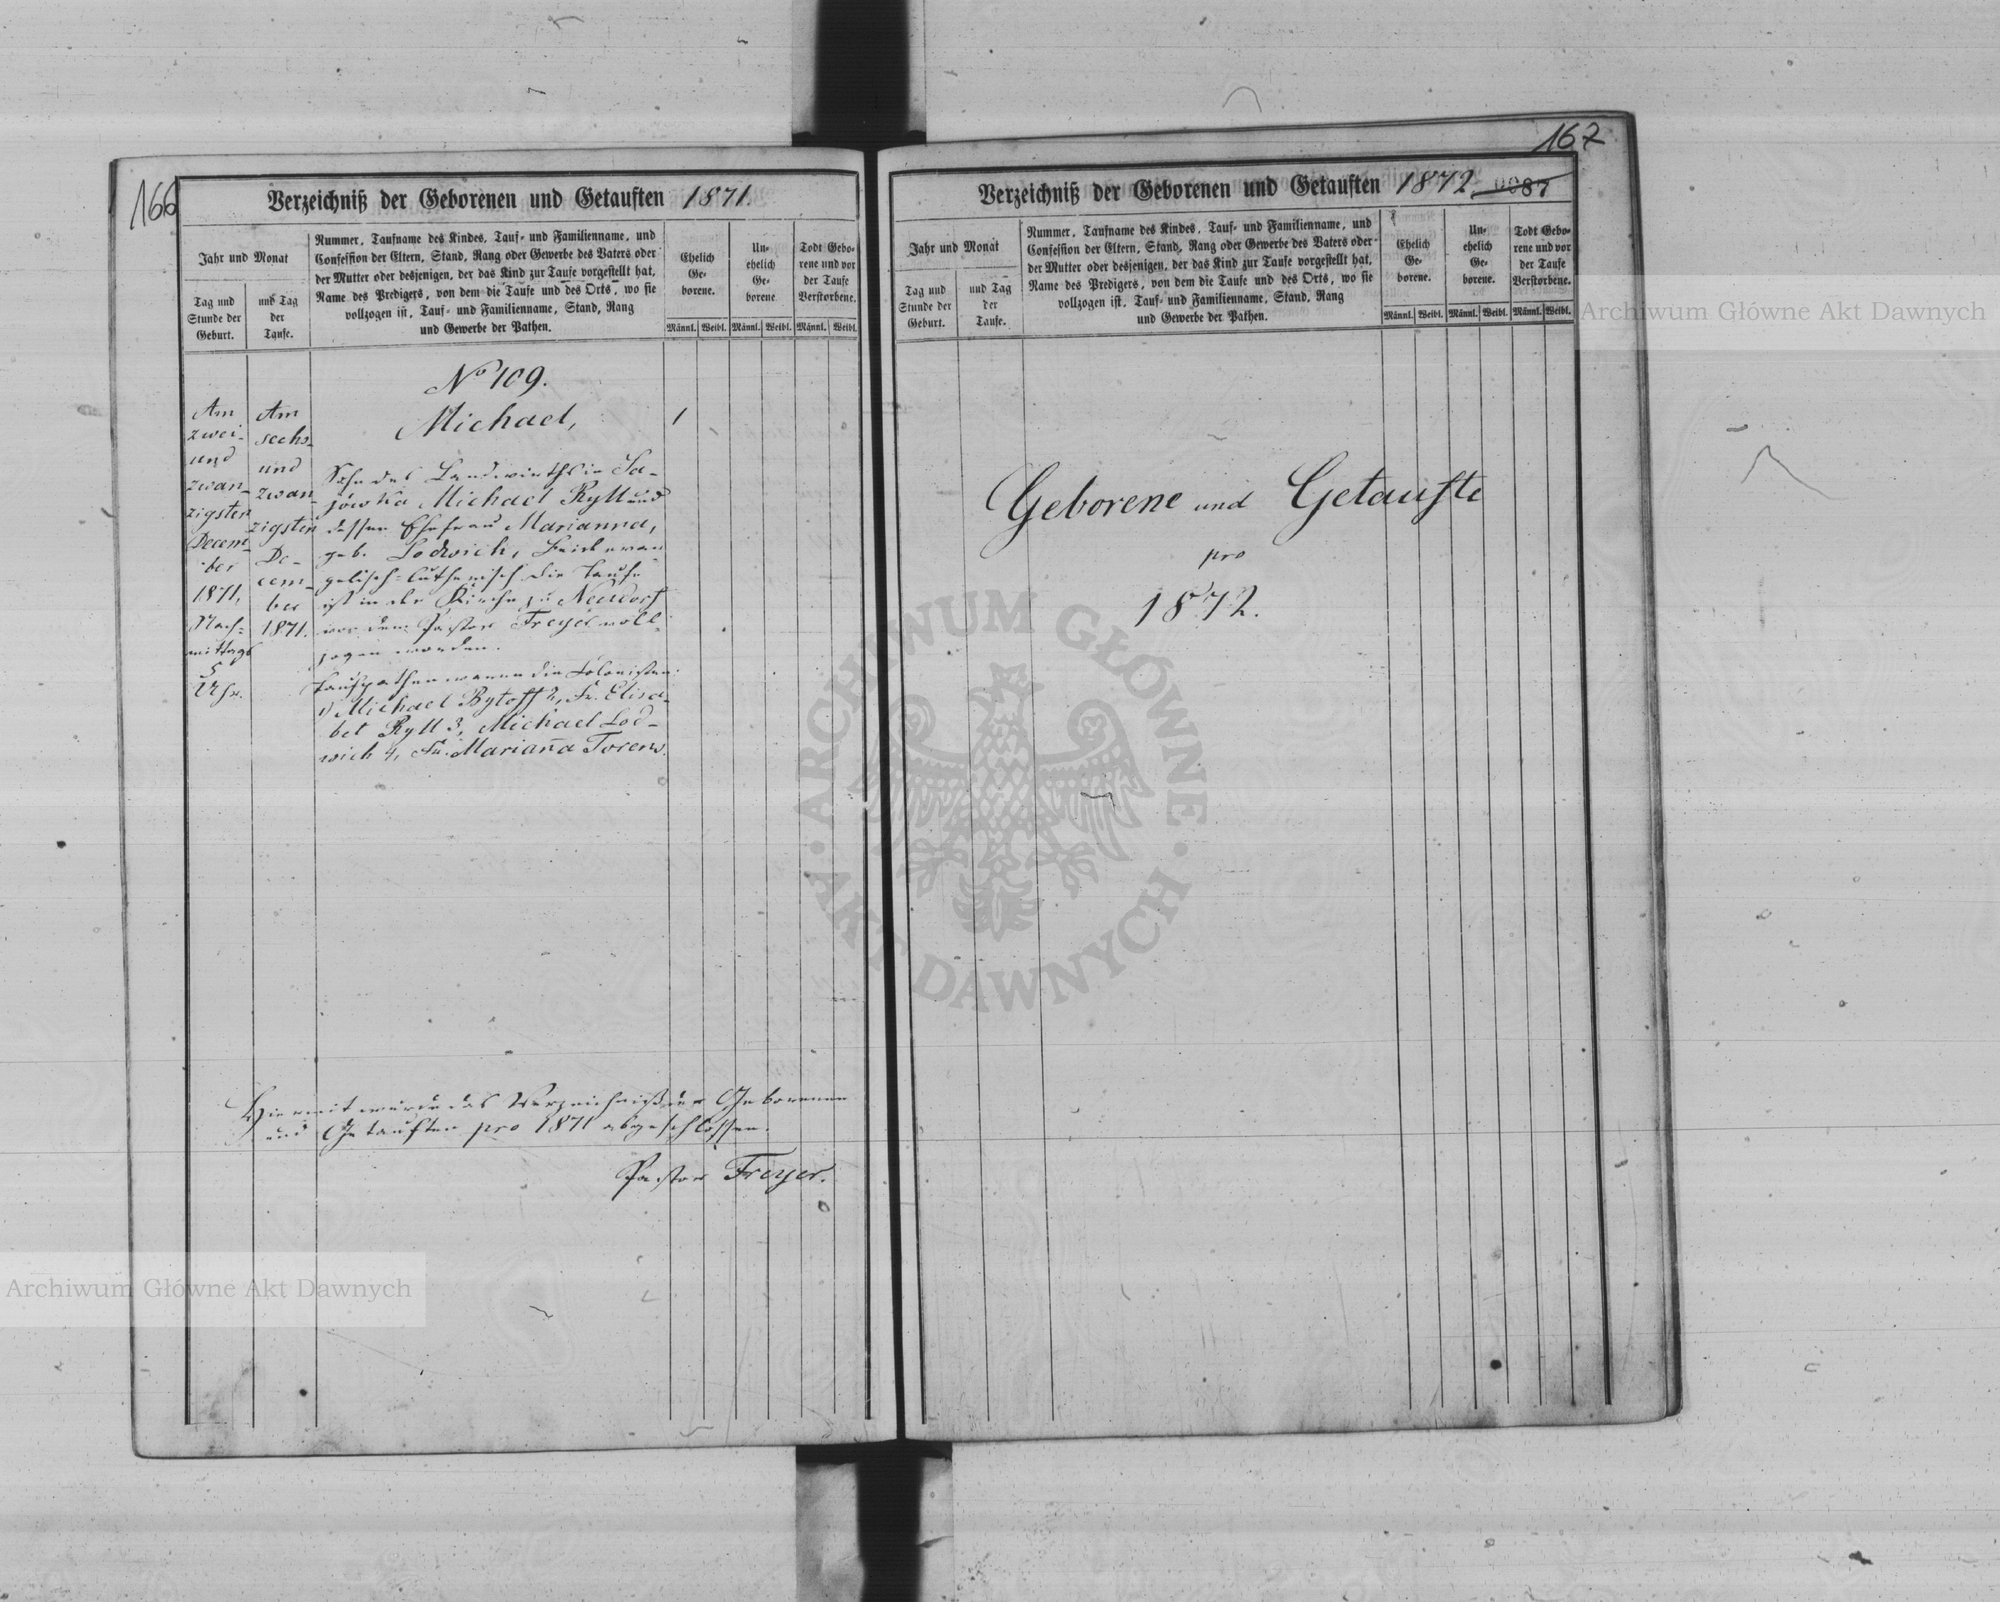 166
Verzeichniß der Geborenen und Getauften 1871.
Jahr und Monat
Tag und Stunde der Geburt.
und Tag der Taufe.
Nummer, Taufname des Kindes, Tauf- und Familienname, und
Confession der Eltern, Stand, Rang oder Gewerbe des Vaters oder
der Mutter oder desjenigen, der das Kind zur Taufe vorgestellt hat,
Name des Predigers, von dem die Taufe und des Orts, wo sie
vollzogen ist, Tauf- und Familienname, Stand, Rang
und Gewerbe der Pathen.
Ehelich Ge- borene.
Un- ehelich Ge- borene
Todt Gebo- rene und vor der Taufe Verstorbene.
Männl. Weibl. Männl. Weibl. Männl. Weibl.
Am
zwei-
und
zwan-
zigsten
Decem-
ber
1871,
Nach-
mittags
5
Uhr.
Am
sechs-
und
zwan-
zigsten
De-
cem-
ber
1871.
No 109.
Michael,
1
Sohn des Landwirths in Sa-
jowka Michael Ryll und
dessen Ehefrau Marianna,
geb. Lodwich, beide evan
gelisch-lutherisch. Die Taufe
ist in der Kirche zu Neudorf
von dem Pastor Freyer voll-
zogen worden.
Taufpathen waren die Colonisten:
1) Michael Bytoff 2, Fr. Elisa-
bet Ryll 3, Michael Lod-
wich 4, Fr. Mariana Torenz.
Hiermit wurde das Verzeichniß der Geborenen
und Getauften pro 1871 abgeschlossen.
Pastor Freyer.
167
Verzeichniß der Geborenen und Getauften 1872. 0087
Jahr und Monat
Tag und Stunde der Geburt.
und Tag der Taufe.
Nummer, Taufname des Kindes, Tauf- und Familienname, und
Confession der Eltern, Stand, Rang oder Gewerbe des Vaters oder
der Mutter oder desjenigen, der das Kind zur Taufe vorgestellt hat,
Name des Predigers, von dem die Taufe und des Orts, wo sie
vollzogen ist, Tauf- und Familienname, Stand, Rang
und Gewerbe der Pathen.
Ehelich Ge- borene.
Un- ehelich Ge- borene.
Todt Gebo- rene und vor der Taufe Verstorbene.
Männl. Weibl. Männl. Weibl. Männl. Weibl.
Geborene und Getaufte
pro
1872.
Archiwum Główne Akt Dawnych
ARCHIWUM GŁÓWNE · AKT DAWNYCH ·
Archiwum Główne Akt Dawnych